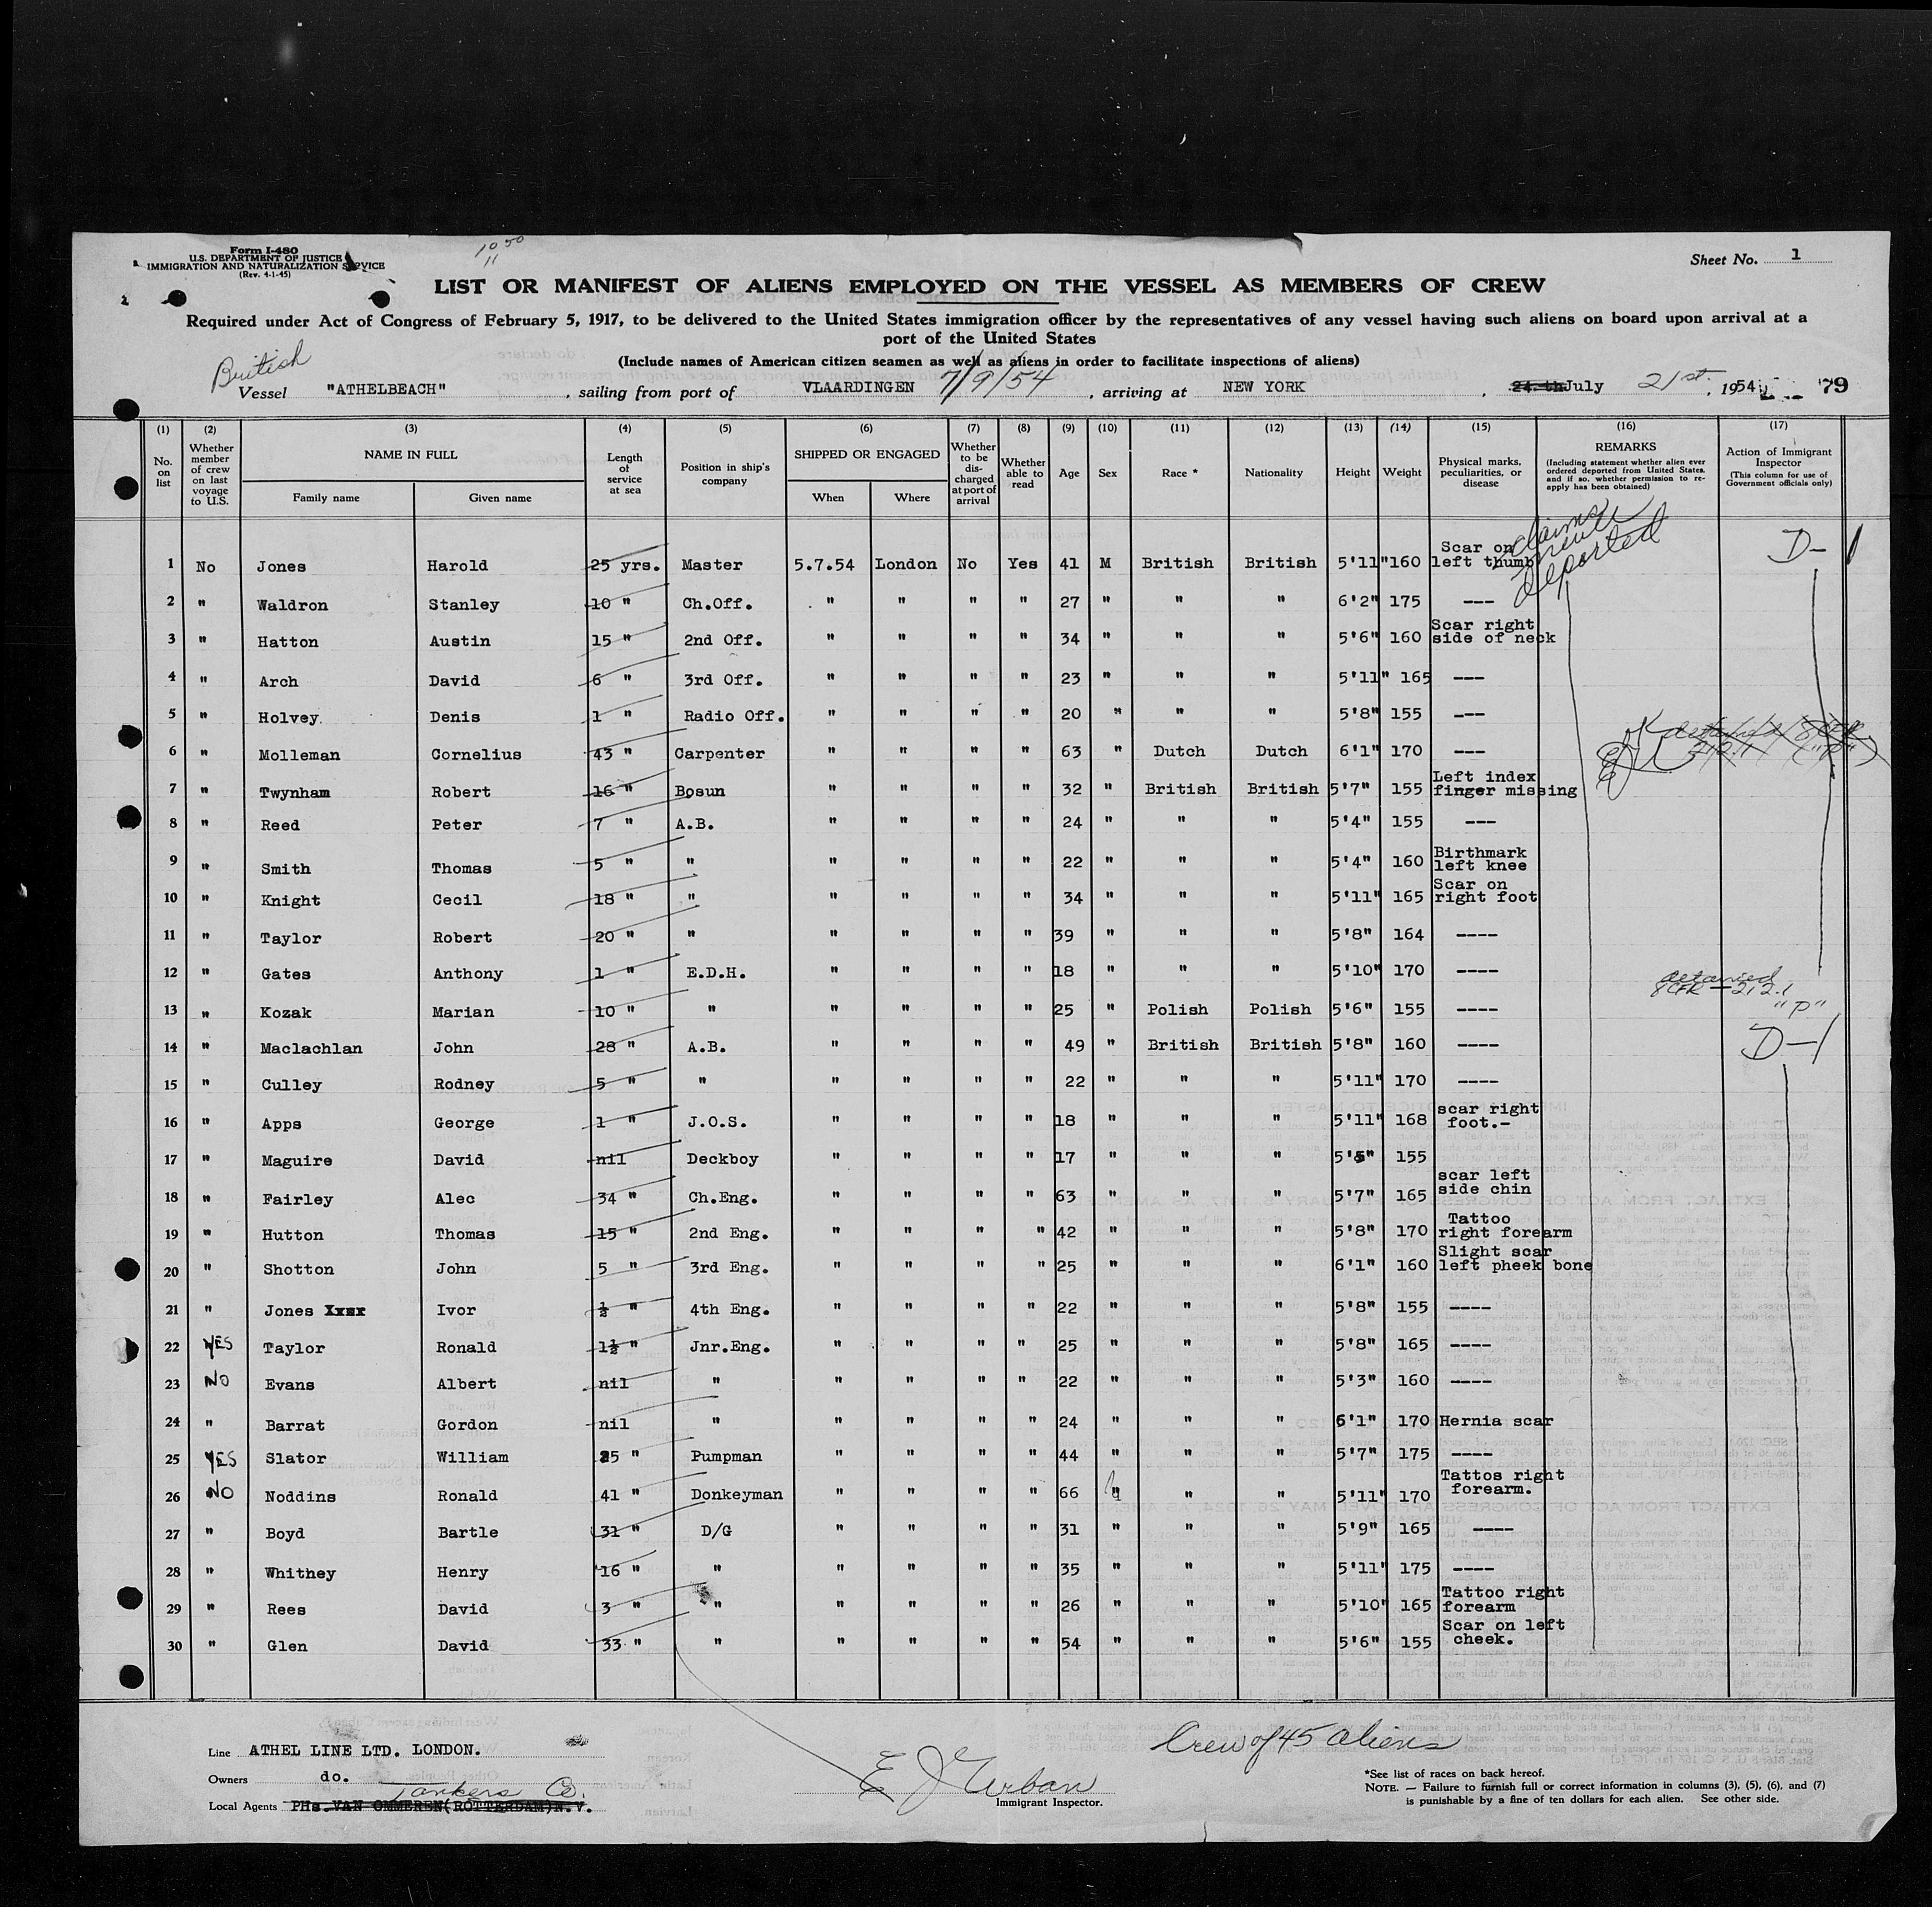 Form I-480
U.S. DEPARTMENT OF JUSTICE
IMMIGRATION AND NATURALIZATION SERVICE
(Rev. 4-1-45)
10 50
11
Sheet No. 1
LIST OR MANIFEST OF ALIENS EMPLOYED ON THE VESSEL AS MEMBERS OF CREW
Required under Act of Congress of February 5, 1917, to be delivered to the United States immigration officer by the representatives of any vessel having such aliens on board upon arrival at a
port of the United States
(Include names of American citizen seamen as well as aliens in order to facilitate inspections of aliens)
British
Vessel "ATHELBEACH" , sailing from port of VLAARDINGEN 7/9/54 , arriving at NEW YORK , 24.th July 21st. , 1954 79
(1) (2) (3) (4) (5) (6) (7) (8) (9) (10) (11) (12) (13) (14) (15) (16) (17)
No. on list Whether member of crew on last voyage to U.S. NAME IN FULL Family name Given name Length of service at sea Position in ship's company SHIPPED OR ENGAGED When Where Whether to be discharged at port of arrival Whether able to read Age Sex Race * Nationality Height Weight Physical marks, peculiarities, or disease REMARKS (Including statement whether alien ever ordered deported from United States, and if so, whether permission to re-apply has been obtained) Action of Immigrant Inspector (This column for use of Government officials only)
claims never deported
1 No Jones Harold 25 yrs. Master 5.7.54 London No Yes 41 M British British 5'11" 160 Scar on left thumb D-1
2 " Waldron Stanley 10 " Ch.Off. " " " " 27 " " " 6'2" 175 ---
3 " Hatton Austin 15 " 2nd Off. " " " " 34 " " " 5'6" 160 Scar right side of neck
4 " Arch David 6 " 3rd Off. " " " " 23 " " " 5'11" 165 ---
5 " Holvey Denis 1 " Radio Off. " " " " 20 " " " 5'8" 155 ---
6 " Molleman Cornelius 43 " Carpenter " " " " 63 " Dutch Dutch 6'1" 170 --- detained 8 CFR 212.1 ("P")
7 " Twynham Robert 16 " Bosun " " " " 32 " British British 5'7" 155 Left index finger missing
8 " Reed Peter 7 " A.B. " " " " 24 " " " 5'4" 155 ---
9 " Smith Thomas 5 " " " " " " 22 " " " 5'4" 160 Birthmark left knee
10 " Knight Cecil 18 " " " " " " 34 " " " 5'11" 165 Scar on right foot
11 " Taylor Robert 20 " " " " " " 39 " " " 5'8" 164 ----
12 " Gates Anthony 1 " E.D.H. " " " " 18 " " " 5'10" 170 ----
13 " Kozak Marian 10 " " " " " " 25 " Polish Polish 5'6" 155 ---- detained 8 CFR - 212.1 "P"
14 " Maclachlan John 28 " A.B. " " " " 49 " British British 5'8" 160 ---- D-1
15 " Culley Rodney 5 " " " " " " 22 " " " 5'11" 170 ----
16 " Apps George 1 " J.O.S. " " " " 18 " " " 5'11" 168 scar right foot.-
17 " Maguire David nil Deckboy " " " " 17 " " " 5'5" 155
18 " Fairley Alec 34 " Ch.Eng. " " " " 63 " " " 5'7" 165 scar left side chin
19 " Hutton Thomas 15 " 2nd Eng. " " " " 42 " " " 5'8" 170 Tattoo right forearm
20 " Shotton John 5 " 3rd Eng. " " " " 25 " " " 6'1" 160 Slight scar left pheek bone
21 " Jones Xxxx Ivor ½ " 4th Eng. " " " " 22 " " " 5'8" 155 ----
22 YES Taylor Ronald 1½ " Jnr.Eng. " " " " 25 " " " 5'8" 165 ----
23 NO Evans Albert nil " " " " " 22 " " " 5'3" 160 ----
24 " Barrat Gordon nil " " " " " 24 " " " 6'1" 170 Hernia scar
25 YES Slator William 25 " Pumpman " " " " 44 " " " 5'7" 175 ----
26 NO Noddins Ronald 41 " Donkeyman " " " " 66 " " " 5'11" 170 Tattos right forearm.
27 " Boyd Bartle 31 " D/G " " " " 31 " " " 5'9" 165 ----
28 " Whithey Henry 16 " " " " " " 35 " " " 5'11" 175 ----
29 " Rees David 3 " " " " " " 26 " " " 5'10" 165 Tattoo right forearm
30 " Glen David 33 " " " " " " 54 " " " 5'6" 155 Scar on left cheek.
Line ATHEL LINE LTD. LONDON.
Owners do.
Tankers Co.
Local Agents PHs.VAN OMMEREN(ROTTERDAM)N.V.
E J Urban
Immigrant Inspector.
Crew of 45 aliens
*See list of races on back hereof.
NOTE. — Failure to furnish full or correct information in columns (3), (5), (6), and (7)
is punishable by a fine of ten dollars for each alien. See other side.